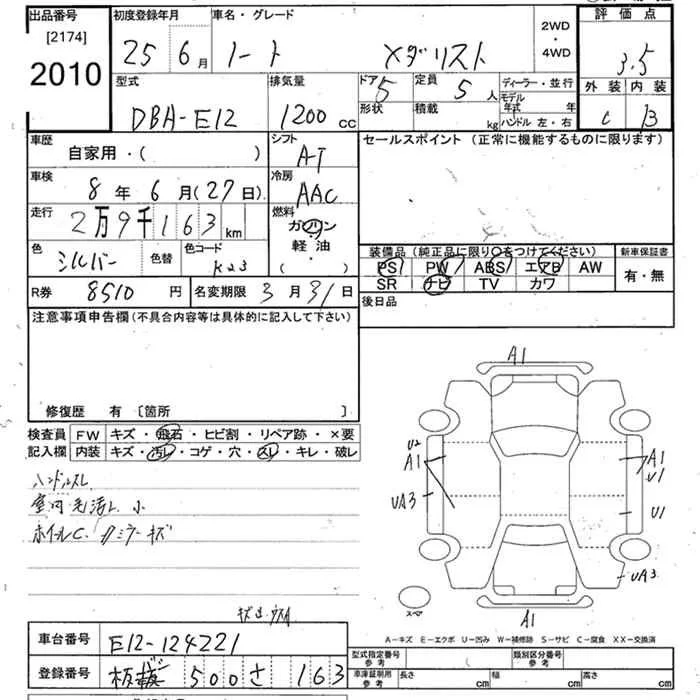 出品番号 初度登録年月 車名・グレード 2WD・4WD 評価点
[2174]
2010 25 6月 ノート メダリスト 3.5
型式 排気量 ドア 5 定員 5人 ディーラー・並行 外装 内装
DBA-E12 1200cc 形状 積載 kg モデル年式 年 C B
ハンドル 左・右
車歴 シフト セールスポイント (正常に機能するものに限ります)
自家用・( ) AT
車検 冷房
8年 6月(27日) AAC
走行 燃料
2万9千163km ガソリン・軽油・( )
色 色替 色コード 装備品 (純正品に限り○をつけてください) 新車保証書
シルバー K23 PS PW ABS エアB AW 有・無
SR ナビ TV カワ
R券 8510円 名変期限 3月31日 後日品
注意事項申告欄 (不具合内容等は具体的に記入して下さい)
修復歴 有 [箇所 ]
検査員 FW キズ・飛石・ヒビ割・リペア跡・×要
記入欄 内装 キズ・汚レ・コゲ・穴・スレ・キレ・破レ
ハンドルスレ
室内 毛汚レ 小
ホイルC
A1
U2
A1
UA3
A1
U1
U1
UA3
スペア
A1
A-キズ E-エクボ U-凹み W-補修跡 S-サビ C-腐食 XX-交換済
車台番号 E12-124221 型式指定番号 参考 類別区分番号 参考
登録番号 500 さ 163 車庫証明用 参考 長さ cm 幅 cm 高さ cm